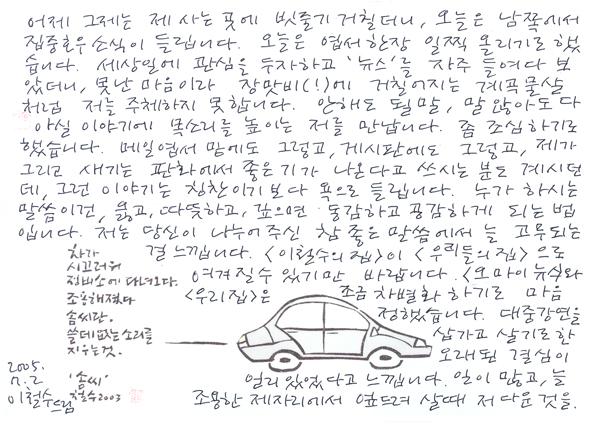 어제 그제는 제 사는 곳에 빗줄기 거칠더니, 오늘은 남쪽에서
집중호우 소식이 들립니다. 오늘은 엽서한장 일찍 올리기로 했
습니다. 세상일에 관심을 두자하고 '뉴스'를 자주 들여다 보
았더니, 못난 마음이라 장맛비(!)에 거칠어지는 계곡물살
처럼 저를 주체하지 못합니다. 안해도 될말, 말 않아도 다
아실 이야기에 목소리를 높이는 저를 만납니다. 좀 조심하기로
했습니다. 메일엽서 밑에도 그렇고, 게시판에도 그렇고, 제가
그리고 새기는 판화에서 좋은기가 나온다고 쓰시는 분도 계시던
데, 그런 이야기는 칭찬이기 보다 욕으로 들립니다. 누가 하시는
말씀이건, 옳고, 따뜻하고, 깊으면 동감하고 공감하게 되는 법
입니다. 저는 당신이 나누어주신 참 좋은 말씀에서 늘 고무되는
걸 느낍니다. <이철수의 집>이 <우리들의 집>으로
여겨질수 있기만 바랍니다. <오마이뉴스>와
<우리집>은 조금 차별화 하기로 마음
정했습니다. 대중강연을
삼가고 살기로한
오래된 결심이
얼리 있었다고 느낍니다. 일이 많고, 늘
조용한 제자리에서 엎드려 살때 저 다운 것을.
차가
시끄러워
정비소에 다녀오다.
조용해졌다
솜씨란.
쓸데없는 소리를
지우는 것.
'솜씨'
철수2003
2005.
7. 2.
이철수드림